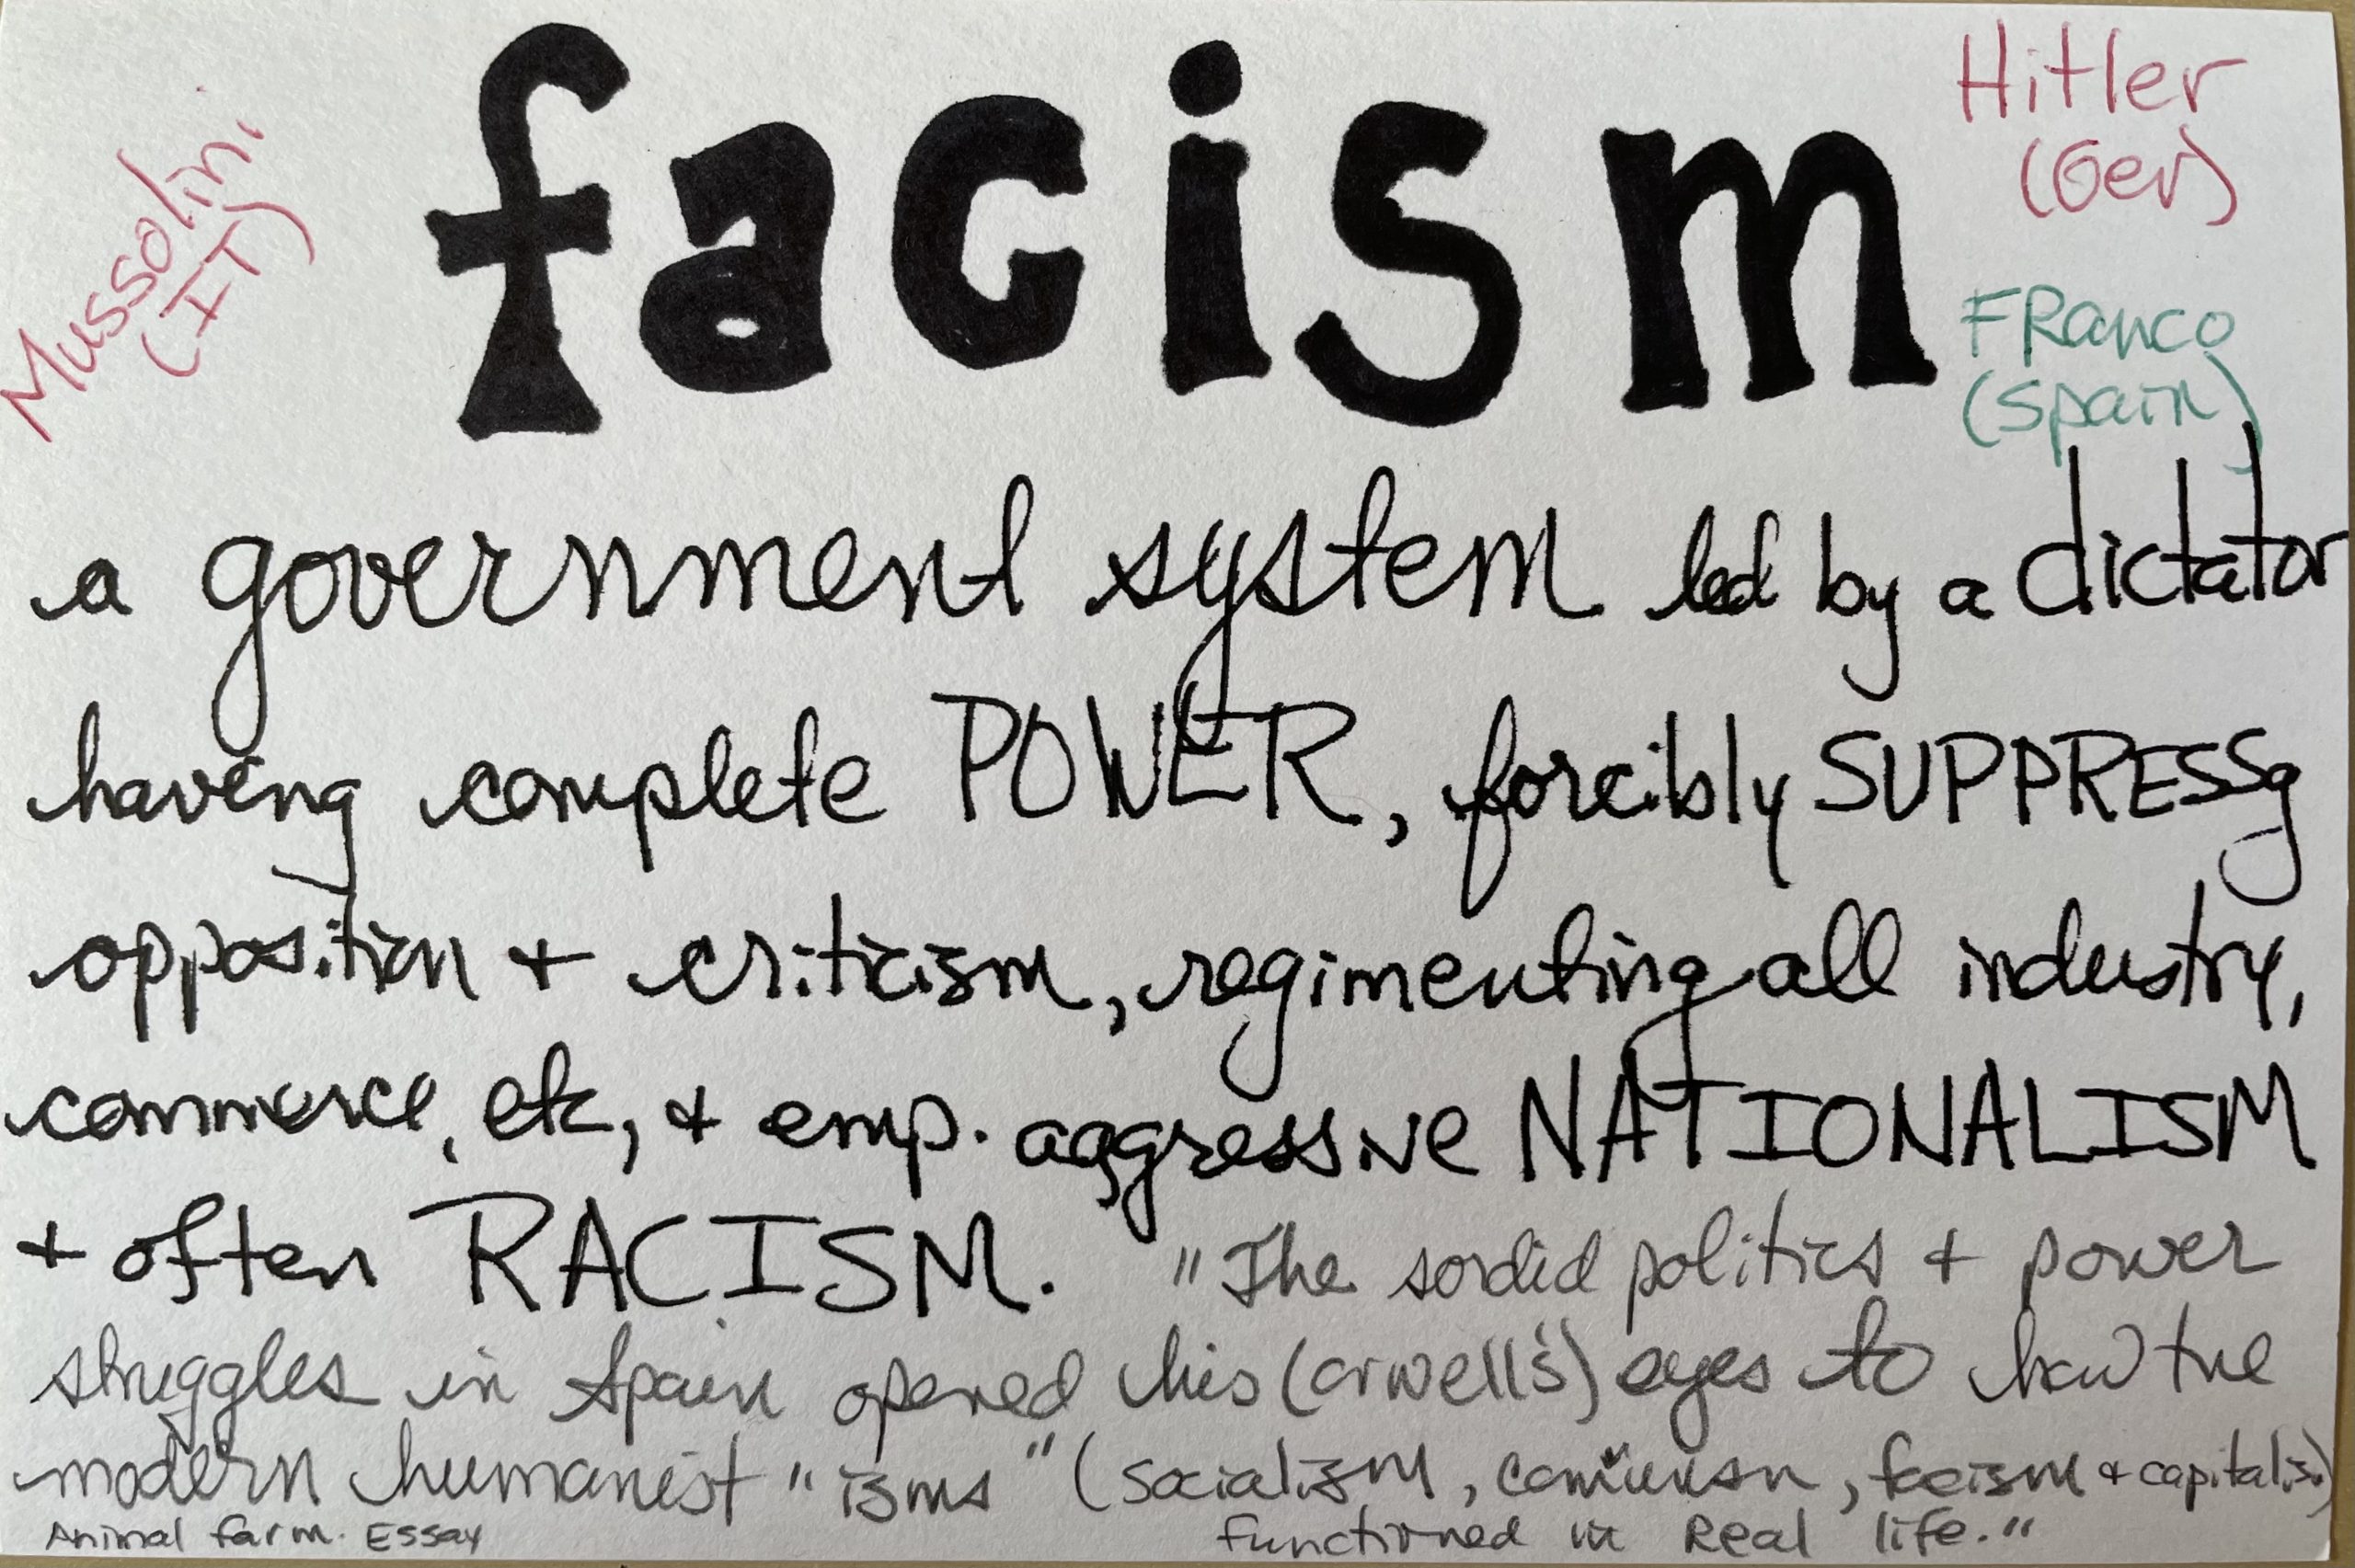 facism
Mussolini
(IT)
Hitler
(Ger)
FRanco
(Spain)
a government system led by a dictator
having complete POWER, forcibly SUPPRESSg
opposition + criticism, regimenting all industry,
commerce, etc, + emp. aggressive NATIONALISM
+ often RACISM. "The sordid politics + power
struggles in Spain opened his (orwell's) eyes to how the
modern humanist "isms" (socialism, facism + capitalis.)
Animal farm. Essay
functioned in Real life."